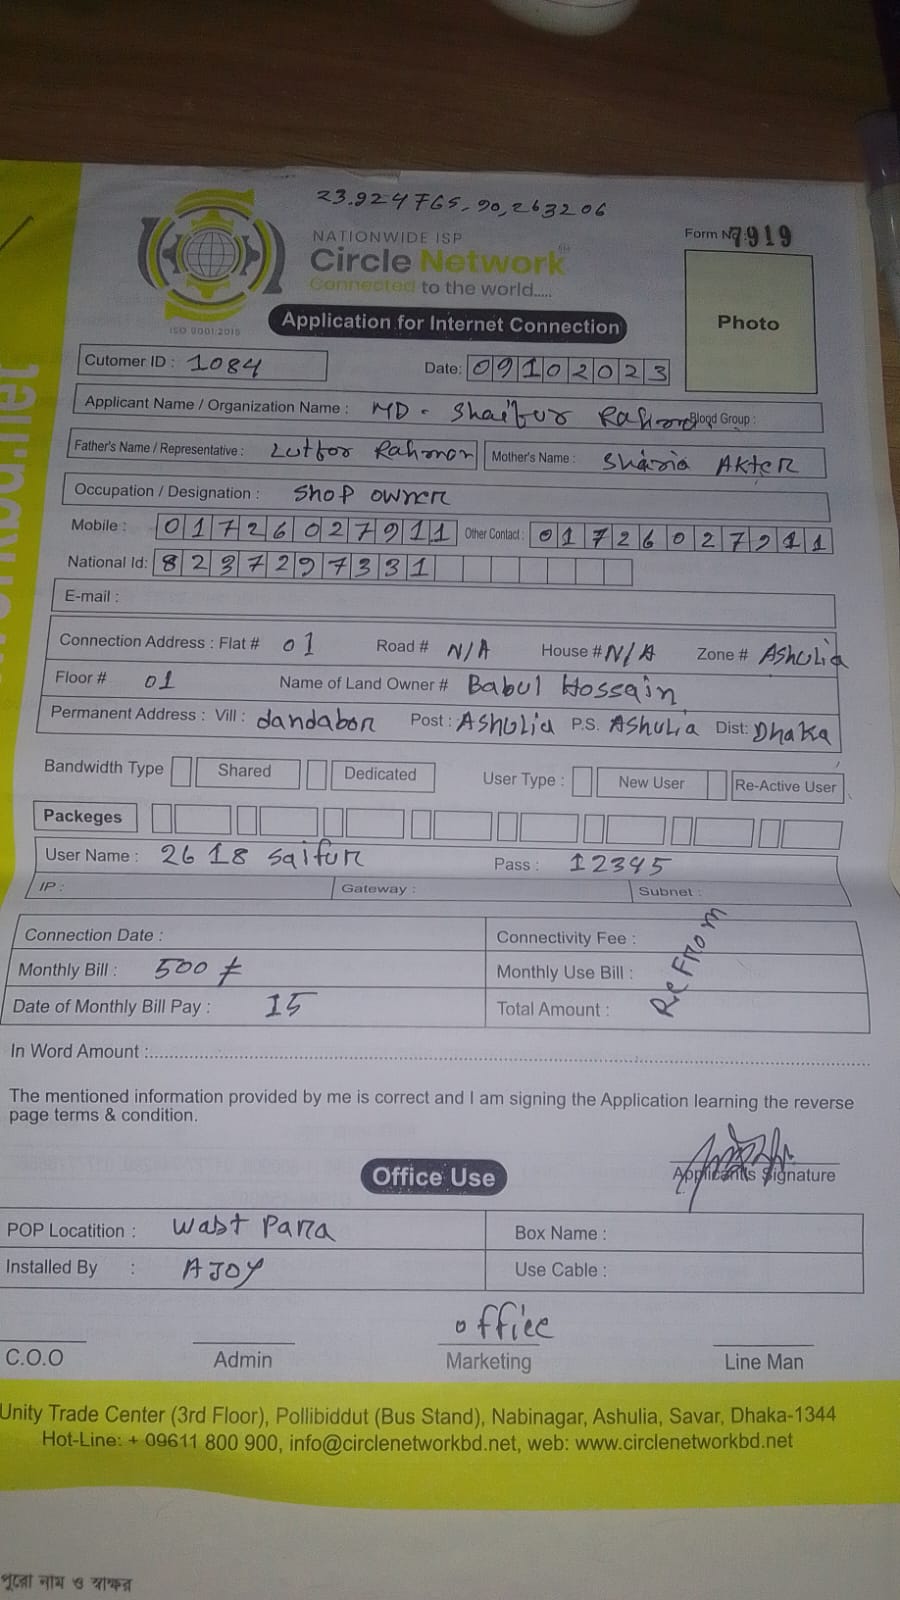 23.924765, 90,263206
NATIONWIDE ISP
Form No: 7919
Circle Network
Connected to the world.....
ISO 9001:2015
Application for Internet Connection
Photo
Cutomer ID : 1084 Date: 09102023
Applicant Name / Organization Name : MD. Shaifur Rahman Blood Group :
Father's Name / Representative : Lutfor Rahman Mother's Name : Sharia AKTER
Occupation / Designation : Shop owner
Mobile : 01726027911 Other Contact : 01726027911
National Id: 8237297331
E-mail :
Connection Address : Flat # 01 Road # N/A House # N/A Zone # Ashulia
Floor # 01 Name of Land Owner # Babul Hossain
Permanent Address : Vill : dandabor Post : Ashulia P.S. Ashulia Dist: Dhaka
Bandwidth Type Shared Dedicated User Type : New User Re-Active User
Packeges
User Name : 2618 saifur Pass : 12345
IP : Gateway : Subnet :
Connection Date : Connectivity Fee :
Monthly Bill : 500 Monthly Use Bill :
Date of Monthly Bill Pay : 15 Total Amount :
ReFrom
In Word Amount :
The mentioned information provided by me is correct and I am signing the Application learning the reverse
page terms & condition.
Applicant's Signature
Office Use
POP Locatition : Wast Para Box Name :
Installed By : AJOY Use Cable :
office
C.O.O Admin Marketing Line Man
Unity Trade Center (3rd Floor), Pollibiddut (Bus Stand), Nabinagar, Ashulia, Savar, Dhaka-1344
Hot-Line: + 09611 800 900, info@circlenetworkbd.net, web: www.circlenetworkbd.net
পুরো নাম ও স্বাক্ষর